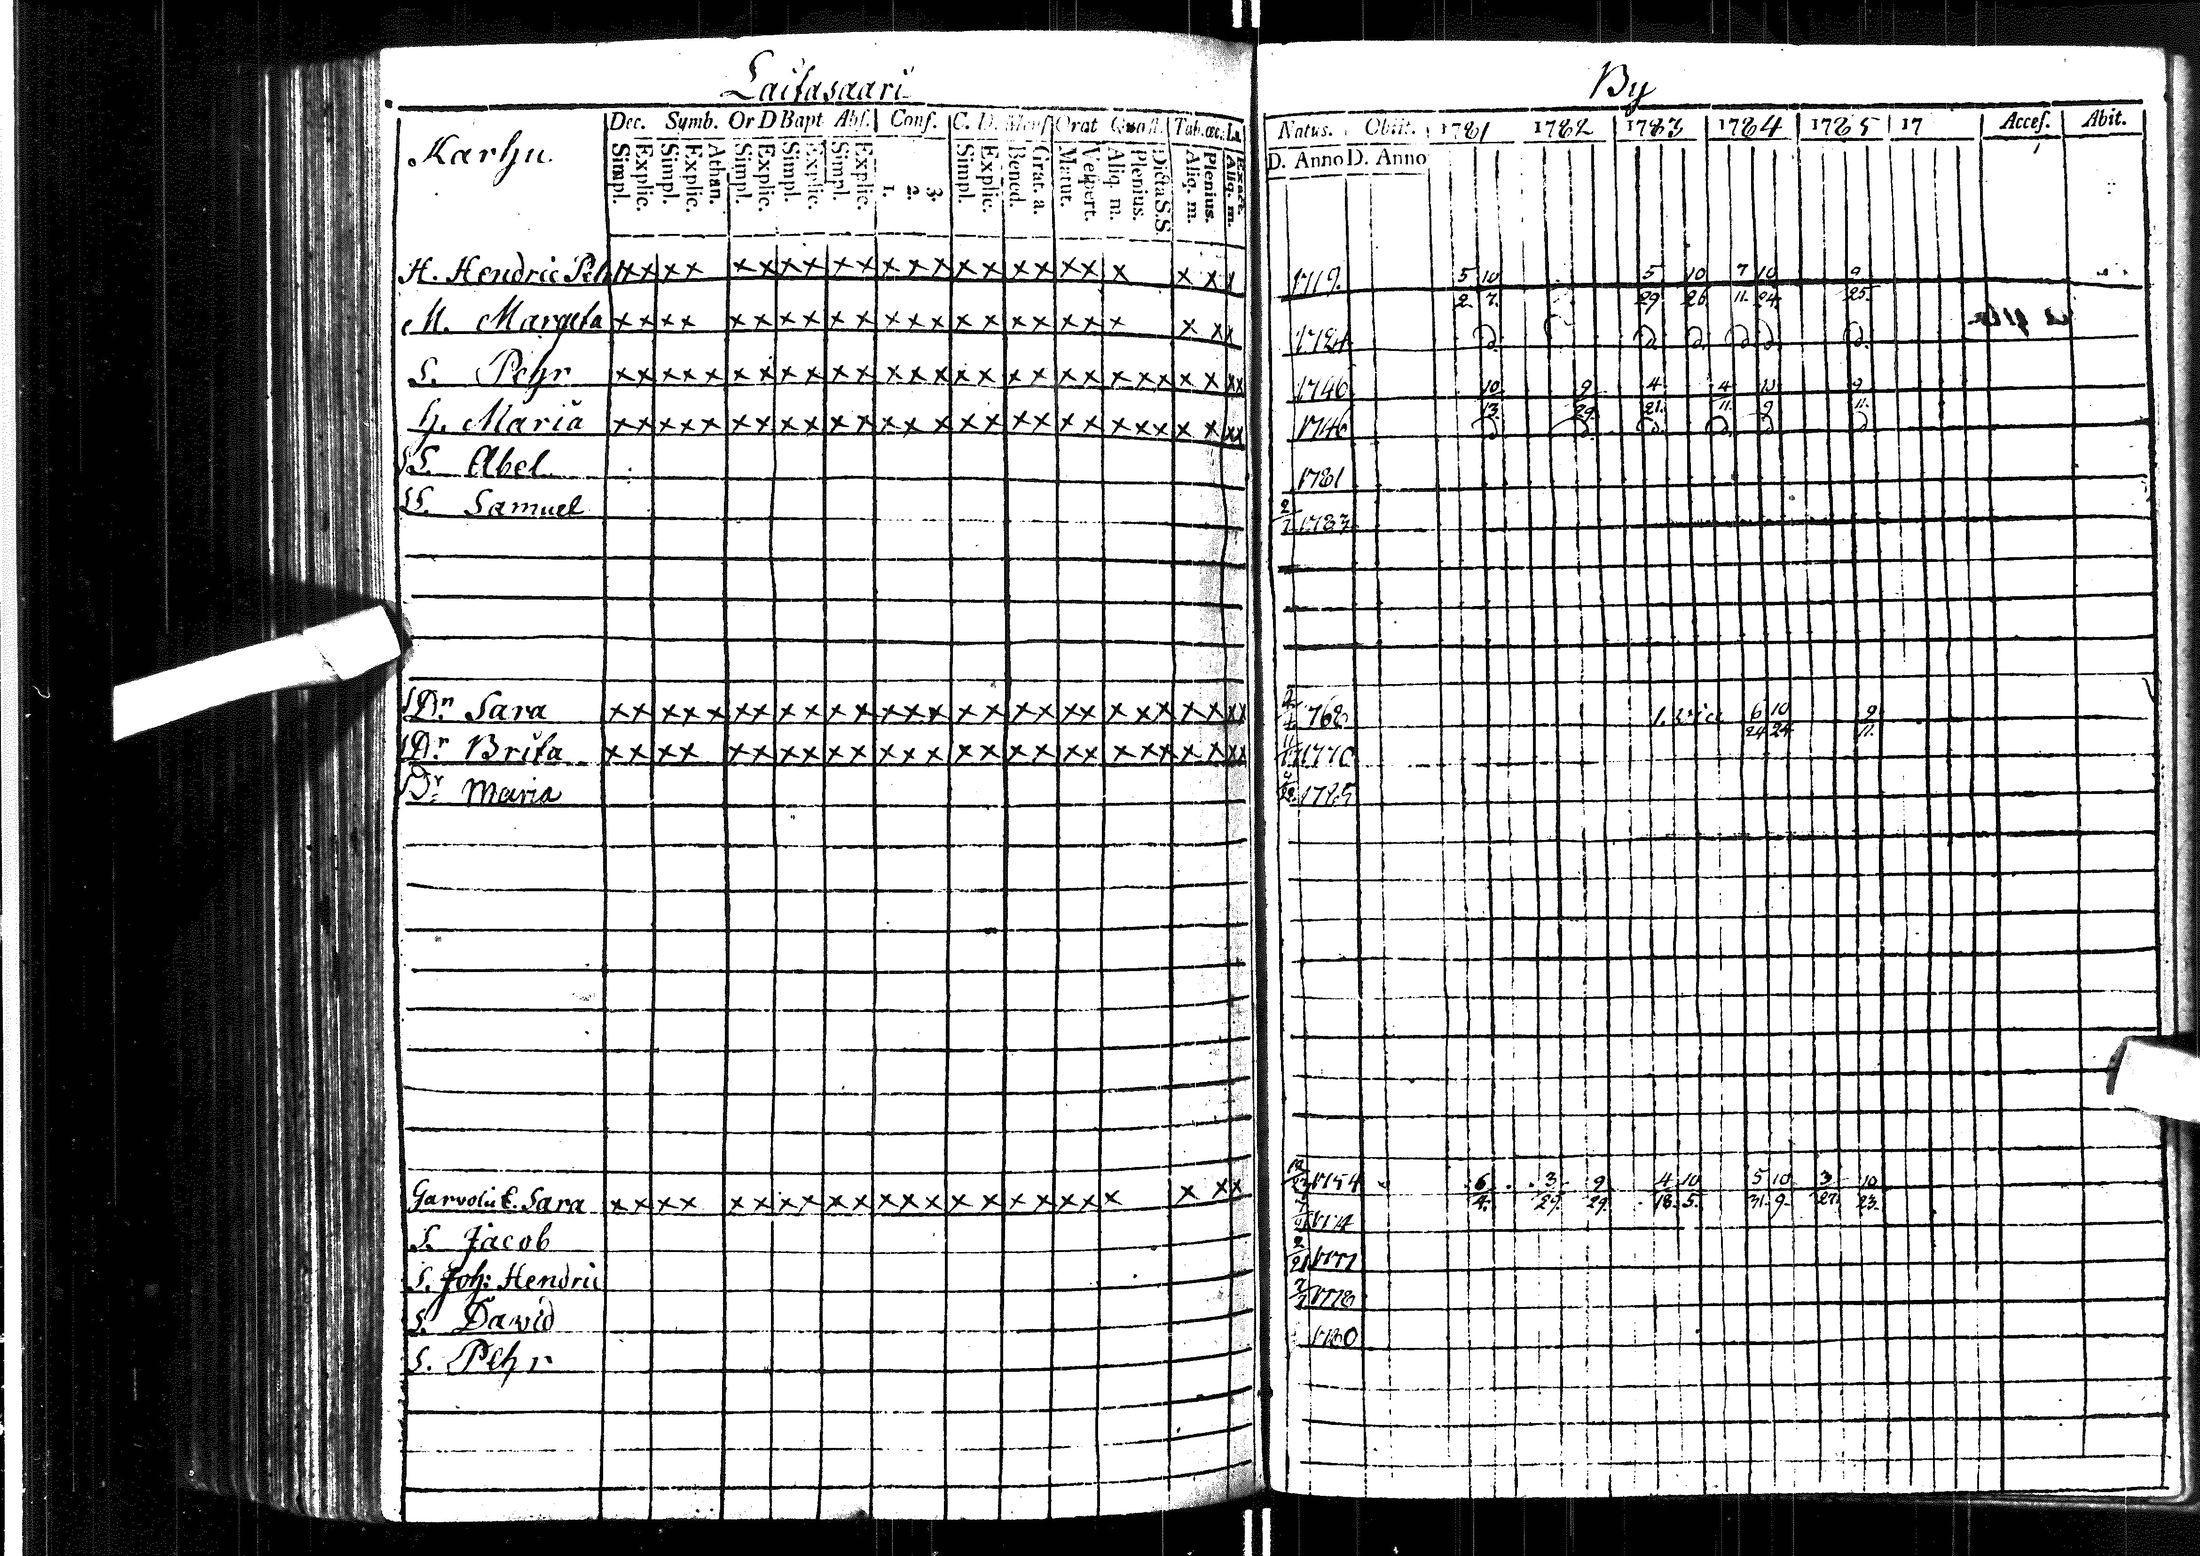 Laitasaari By
Karhu
Dec. Symb. Or D Bapt Abs. Conf. C. D. Mens Orat Quæst. Tab. œc. La
Simpl. Explic. Simpl. Explic. Athan. Simpl. Explic. Simpl. Explic. Simpl. Explic. 1. 2. 3. Simpl. Explic. Bened. Grat. a. Matut. Vespert. Aliq. m. Plenius. Dicta S.S. Aliq. m. Plenius. Aliq. m. Exact.
Natus. Obiit. 1781 1782 1783 1784 1785 17 Acces. Abit.
D. Anno D. Anno
H. Hendric Peh × × × × × × × × × × × × × × × × × × × × × × 1719. 5/2 10/7. 5/29 10/26 7/11. 10/24. 9/25.
M. Margeta × × × × × × × × × × × × × × × × × × × × × × × 1724
S. Pehr × × × × × × × × × × × × × × × × × × × × × × × × × × × 1746 10/13. 9/29. 4/21. 4/11. 9/11.
H. Maria × × × × × × × × × × × × × × × × × × × × × × × × × × × 1746
SS. Abel 1781
SS. Samuel 2/7 1783
SDr Sara × × × × × × × × × × × × × × × × × × × × × × × × × × × 1768 1. vice 6/24 10/24 9/11.
SDr Brita × × × × × × × × × × × × × × × × × × × × × × × × × × 1770
SDr Maria 1785
Garvolu E. Sara × × × × × × × × × × × × × × × × × × × × × × × 1754 6/4. 3/29. 9/29. 4/18. 10/5. 5/31. 10/9. 3/27. 10/23.
S. Jacob 1774
S. Joh: Hendric 2/21 1777
S. David 7/7 1778
S. Pehr 1780